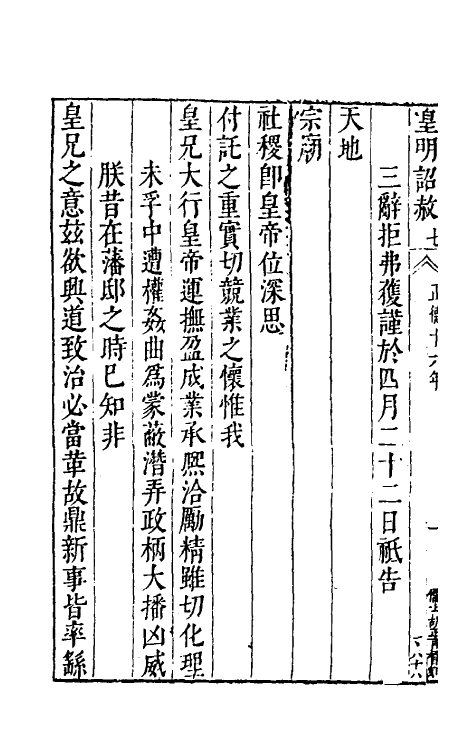 皇明詔赦 七 正德十六年 一
三辭拒弗獲謹於四月二十二日祗告
天地
宗廟
社稷卽皇帝位深思
付託之重實切競業之懷惟我
皇兄大行皇帝運撫盈成業承熈洽勵精雖切化理
未孚中遭權姦曲爲蒙蔽潛弄政柄大播凶威
朕昔在藩邸之時已知非
皇兄之意茲欲興道致治必當革故鼎新事皆率繇